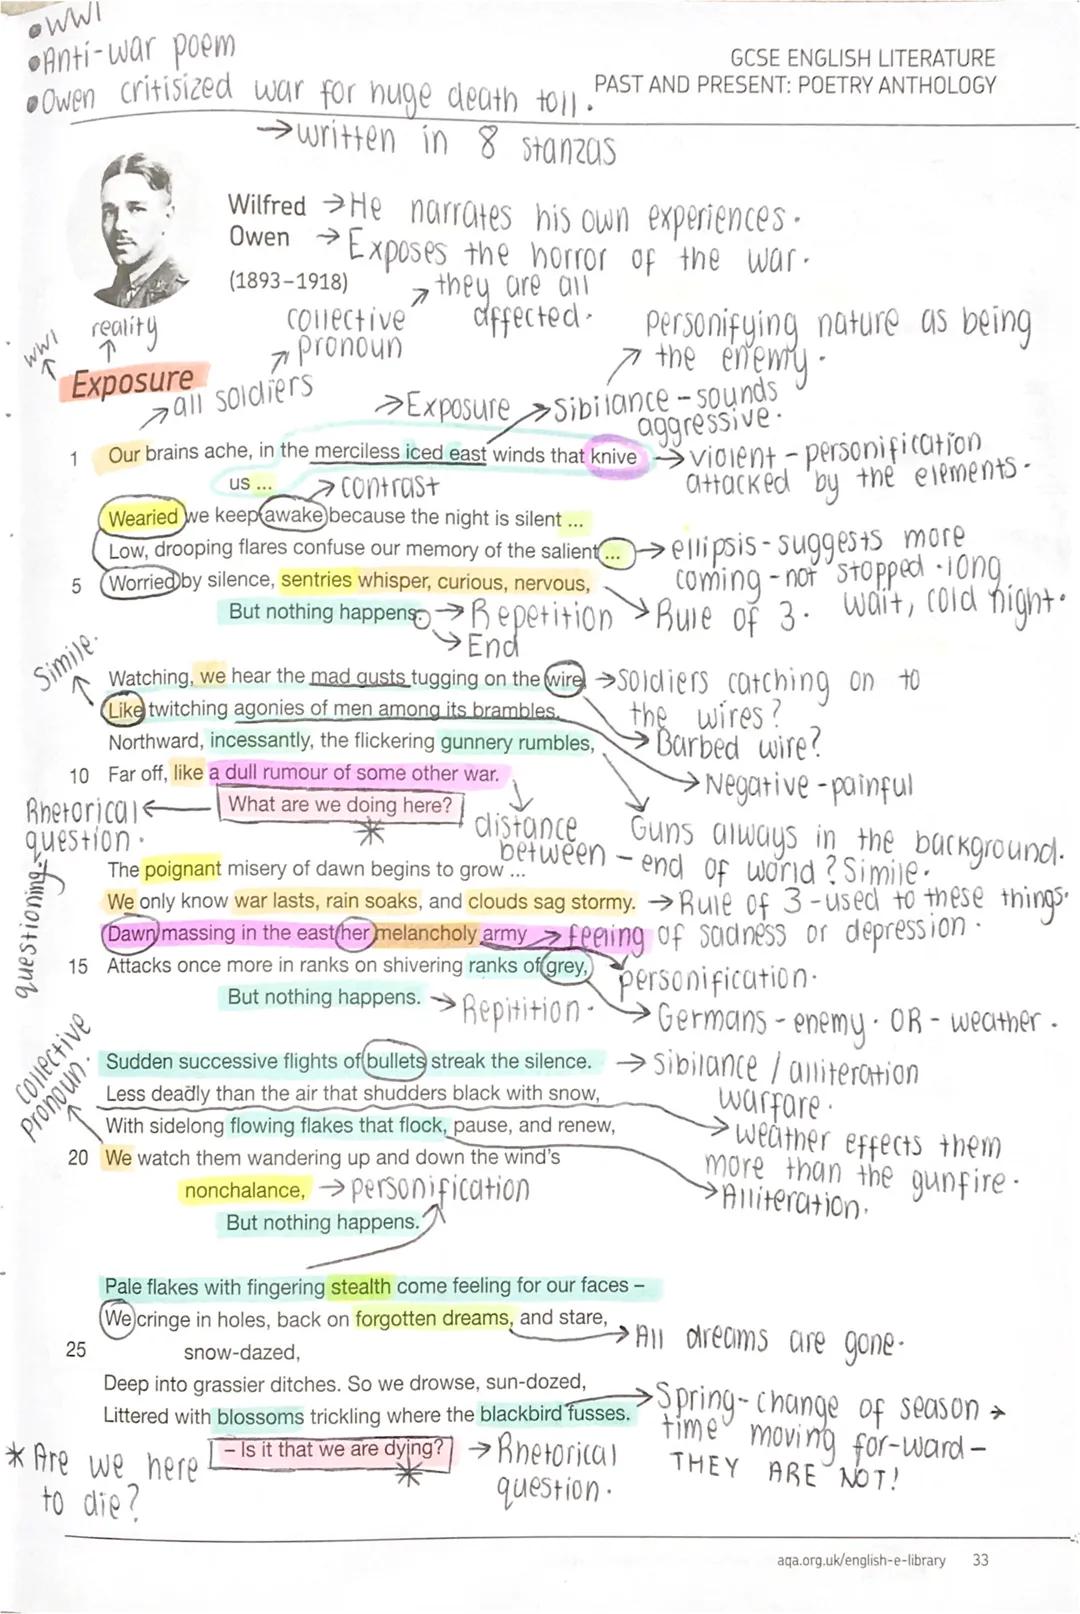 •WW1
•Anti-war poem
•Owen critisized war for huge death toll.
→written in 8 stanzas
GCSE ENGLISH LITERATURE
PAST AND PRESENT: POETRY ANTHOLOGY
Wilfred Owen
(1893–1918)
→He narrates his own experiences.
→Exposes the horror of the war.
they are all affected.
collective pronoun
reality
WW1
Exposure
all soldiers
→Exposure
→Sibilance – sounds aggressive.
Personifying nature as being the enemy.
1 Our brains ache, in the merciless iced east winds that knive
us ...
→violent – personification
attacked by the elements.
→contrast
Wearied we keep awake because the night is silent ...
Low, drooping flares confuse our memory of the salient ...
→ellipsis – suggests more
coming – not stopped. long
wait, cold night.
5 Worried by silence, sentries whisper, curious, nervous,
→Rule of 3.
But nothing happens.
→Repetition
→End
Simile.
Watching, we hear the mad gusts tugging on the wire,
→Soldiers catching on to
the wires?
→Barbed wire?
Like twitching agonies of men among its brambles.
→Negative – painful
Northward, incessantly, the flickering gunnery rumbles,
Guns always in the background.
10 Far off, like a dull rumour of some other war.
distance
between – end of world? Simile.
What are we doing here?
*
Rhetorical question.
questioning
The poignant misery of dawn begins to grow ...
We only know war lasts, rain soaks, and clouds sag stormy.
→Rule of 3 – used to these things.
Dawn massing in the east her melancholy army
→feeling of sadness or depression.
personification.
15 Attacks once more in ranks on shivering ranks of grey,
→Germans – enemy. OR – weather.
But nothing happens.
→Repitition.
Collective pronoun.
Sudden successive flights of bullets streak the silence.
→sibilance / alliteration
warfare.
Less deadly than the air that shudders black with snow,
→weather effects them
more than the gunfire.
With sidelong flowing flakes that flock, pause, and renew,
→Alliteration.
20 We watch them wandering up and down the wind's
nonchalance,
→personification
But nothing happens.
Pale flakes with fingering stealth come feeling for our faces –
We cringe in holes, back on forgotten dreams, and stare,
→All dreams are gone.
25 snow-dazed,
Deep into grassier ditches. So we drowse, sun-dozed,
Littered with blossoms trickling where the blackbird fusses.
→Spring – change of season →
time moving for-ward –
THEY ARE NOT!
– Is it that we are dying?
*
→Rhetorical
question.
* Are we here
to die?
aqa.org.uk/english-e-library 33